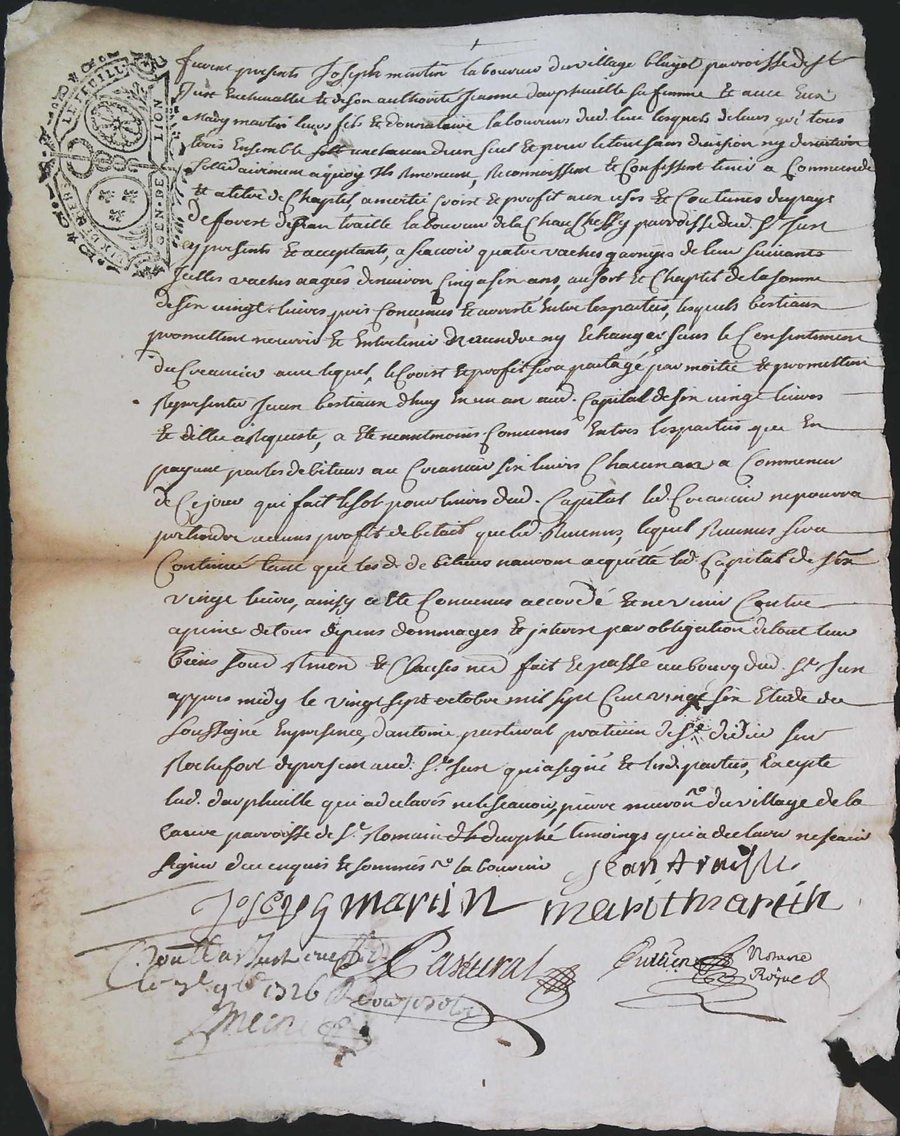 LA FEUILL
GEN DE LION
DEUX DENIERS
furent presents Joseph martin laboureur du village parroisse de St
Just en chevallet & de son authorité Jeanne dauphuille sa femme & avec eux
Mary martin leurs fils & donnataire laboureurs dud. lieu lesquels de leurs gré tous
trois Ensemble un chacun d'un seul & pour le tout sans division ny
sollidairement a quoy Ils Renoncent, Reconnoissent & Confessent tenir a Commande
& a titre de Chaptel a moitié Croist & profit aux usos & Coutumes du pays
de forest de Jean traille laboureur de la parroisse dud. St. Just
y presents & acceptants, a scavoir quatre vaches garnyes de leur suivants
Icelles vaches aagés denviron Cinq a six ans, au sort & Chaptel de la somme
de six vingt livres prix Convenus & arresté Entre les parties, lesquels bestiaux
promettent nourrir & Entretenir ne vendre ny Echanger sans le Consentement
du Creancier avec lequel, le Croist & profit sera partagé par moitié & promettent
Representer Iceux bestiaux d'huy en un an aud. Capital de six vingt livres
& dillec a Requeste, a esté neantmoins Convenus Entre les parties que En
payant par les debiteurs au Creancier six livres Chacun an a Commencer
de Ce jour qui fait le sol pour livres dud. Capital led. Creancier ne pourra
pretendre aucuns profits de betail que led. Revenus, lequel Revenus sera
Continué tant que lesd. debiteurs nauront acquitté led. Capital de six
vingt livres, ainsy a esté Convenus accordé & ne venir Contre
a peine de tous depens dommages & interest par obligation de tout leur
biens soub. Renon & Clauses fait & passé au bourg dud. St. Just
appres midy le vingt sept octobre mil sept Cent vingt six Etude du
soussigné En presence d'antoine pasturat praticien de St. didier sur
Rochefort de present aud. St. Just qui a signé & lesd. parties, Excepté
lad. dauphuille qui a declarés ne le scavoir, pierre du village de la
parroisse de St. Romain temoings qui a declaré ne scavoir
signer de ce enquis & sommés la laboureur
Jean traille
Joseph martin marit martin
Pasturat
Notaire
Royal
le 1726